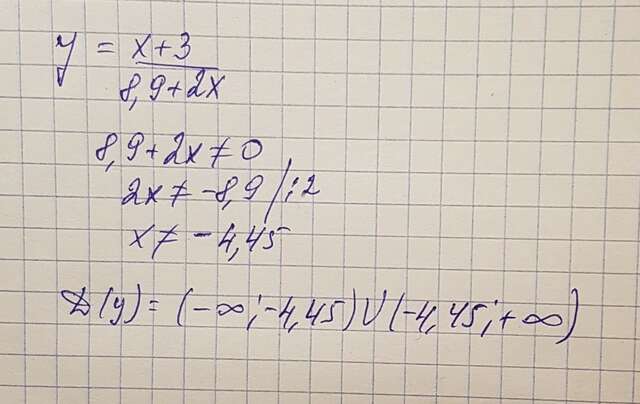 y = x+3
8,9+2x
8,9+2x≠0
2x≠-8,9 /:2
x≠-4,45
D(y)=(-∞;-4,45)∪(-4,45;+∞)